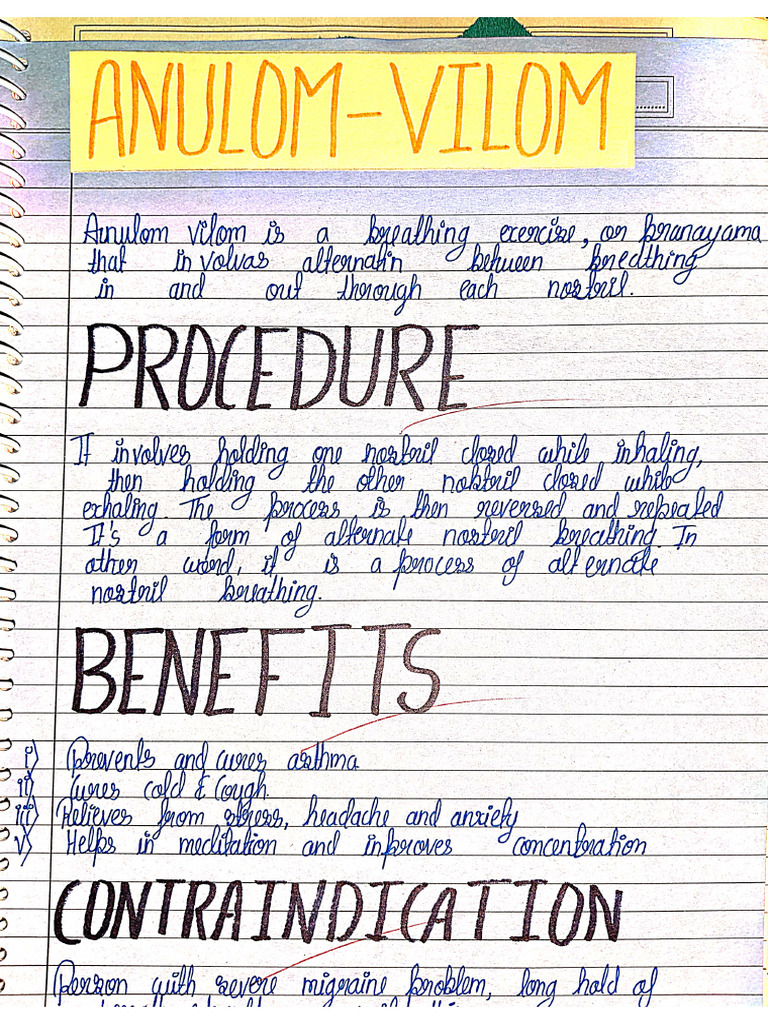 ANULOM-VILOM
Anulom vilom is a breathing exercise, or pranayama
that involvas alternatin between bredthing
in and out through each nostril.
PROCEDURE
If involves holding one nostril closed while inhaling,
then holding the other nobtril closed while
exhaling. The process is then reversed and repeated
It's a form of alternate nostril breathing. In
other word, if is a process of alternate
nostril breathing.
BENEFITS
i) Prevents and cures asthma
ii) Cures cold & Cough.
iii) Relieves from stress, headache and anxiety
v) Helps in meditation and improves concentration
CONTRAINDICATION
Person with severe migraine problem, long hold of